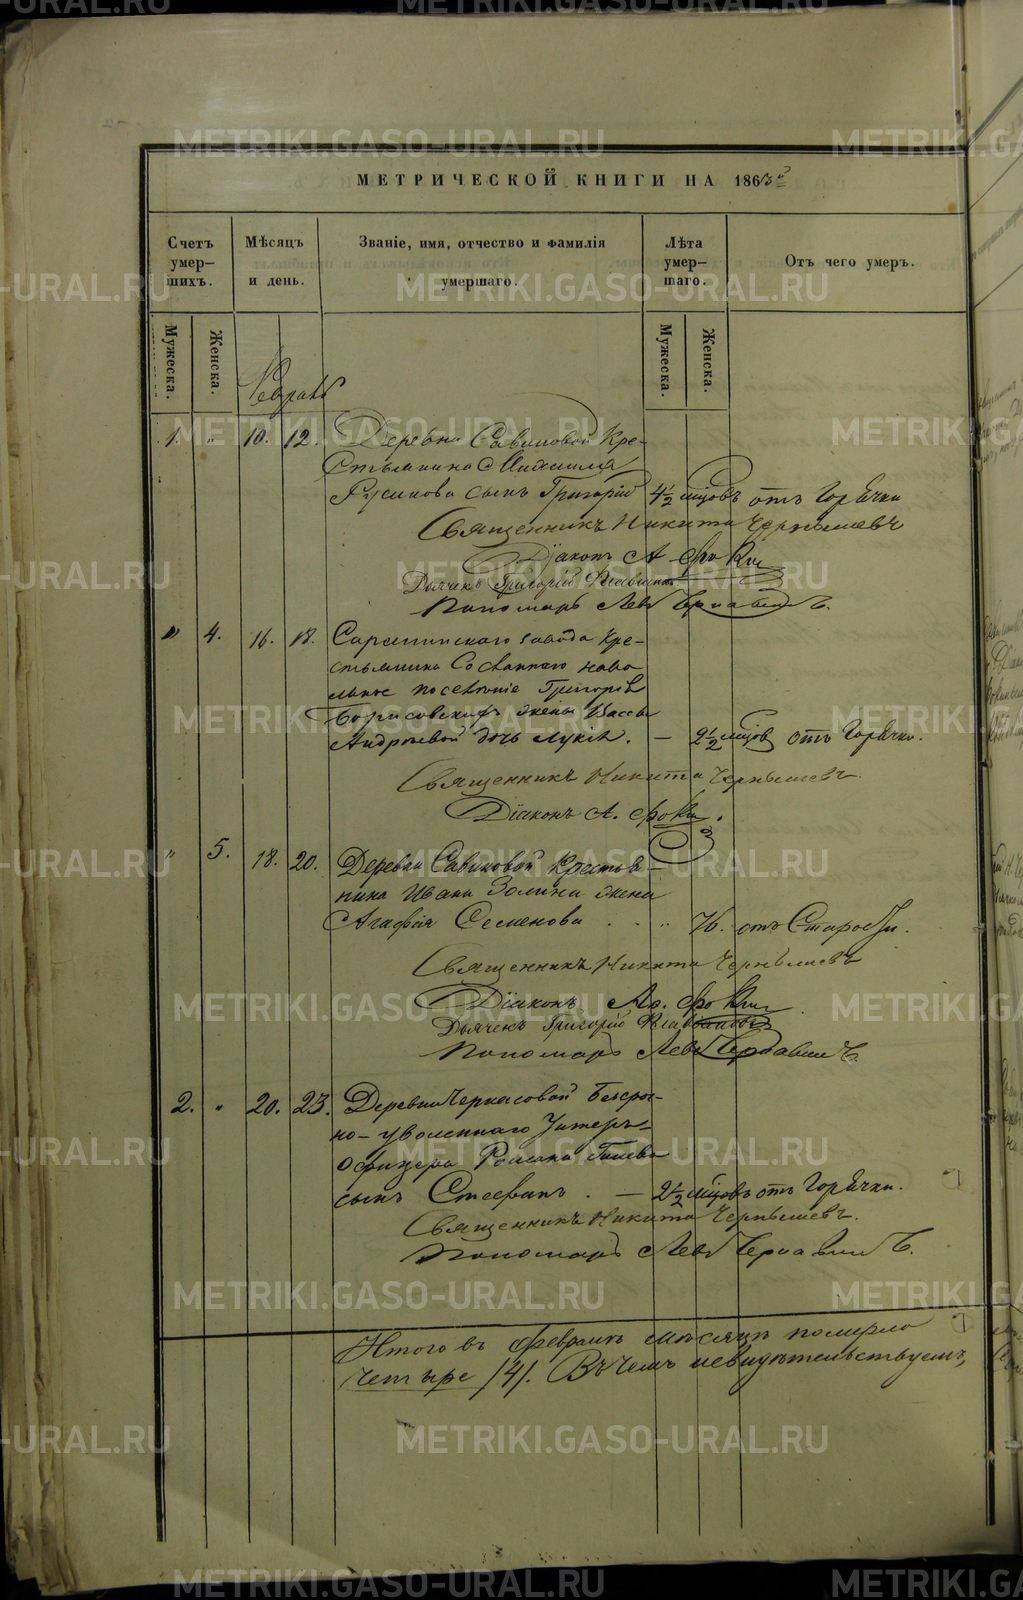 МЕТРИЧЕСКОЙ КНИГИ НА 1863й
Счетъ умер— шихъ.
Мѣсяцъ и день.
Званіе, имя, отчество и фамилія умершаго.
Лѣта умер— шаго.
Отъ чего умеръ.
Мужеска.
Женска.
Мужеска.
Женска.
Февраль
1. " 10. 12. Деревни Савиновой Кре-
стьянина Михаила
Русинова сынъ Григорій 4½ мцовъ отъ Горячки
Священникъ Никита Чернышевъ
Діаконъ А.
Дьячекъ Григорій
Пономарь Левъ
" 4. 16. 18. завода Кре-
стьянина Сосланнаго на во
льное поселеніе Григорія
Борисовскихъ жены Вассы
Андреевой дочь Лукія. — 2½ мцов отъ Горячки.
Священникъ Никита Чернышевъ.
Діаконъ А.
" 5. 18. 20. Деревни Савиновой Крестья-
нина Ивана Золина жена
Агафія Семенова . . " 76. отъ Старости.
Священникъ Никита Чернышевъ
Діаконъ
Дьячекъ Григорій
Пономарь Левъ
2. " 20. 23. Деревни Черкасовой Безсроч-
но-уволеннаго Унтеръ-
Офицера Романа
сынъ Стефанъ. — 2½ мцовъ отъ Горячки.
Священникъ Никита Чернышевъ.
Пономарь Левъ
Итого въ Февралѣ мѣсяцѣ померло
четыре /4/. Въ чемъ и свидѣтельствуемъ,
METRIKI.GASO-URAL.RU